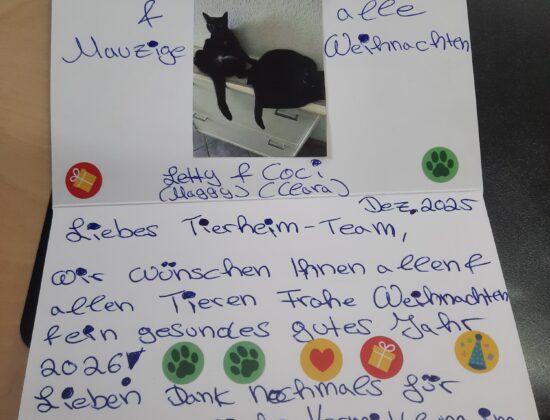 & alle
Mauzige Weihnachten
Letty & Coci
(Maggy) (Ceara)
Dez. 2025
Liebes Tierheim-Team,
wir wünschen Ihnen allen &
allen Tieren Frohe Weihnachten
& ein gesundes gutes Jahr
2026!
Lieben Dank nochmals für